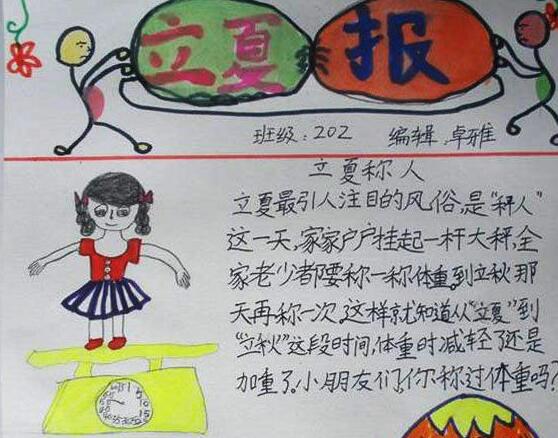 立夏报
班级:202 编辑:卓雅
立夏称人
立夏最引人注目的风俗,是“秤人”
这一天,家家户户挂起一杆大秤,全
家老少都要称一称体重,到立秋那
天再称一次,这样就知道从“立夏”到
“立秋”这段时间,体重时减轻了还是
加重了。小朋友们,你称过体重吗?